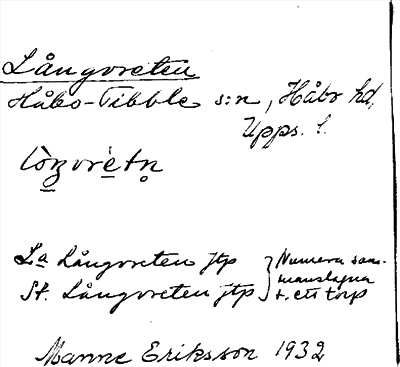 Långvreten
Håbo-Tibble s:n, Håbo hd,
Upps. l.
lòŋvrètn̥
La Långvreten jtp } Numera sam-
manslagna
St. Långvreten jtp t. ett torp
Manne Eriksson 1932